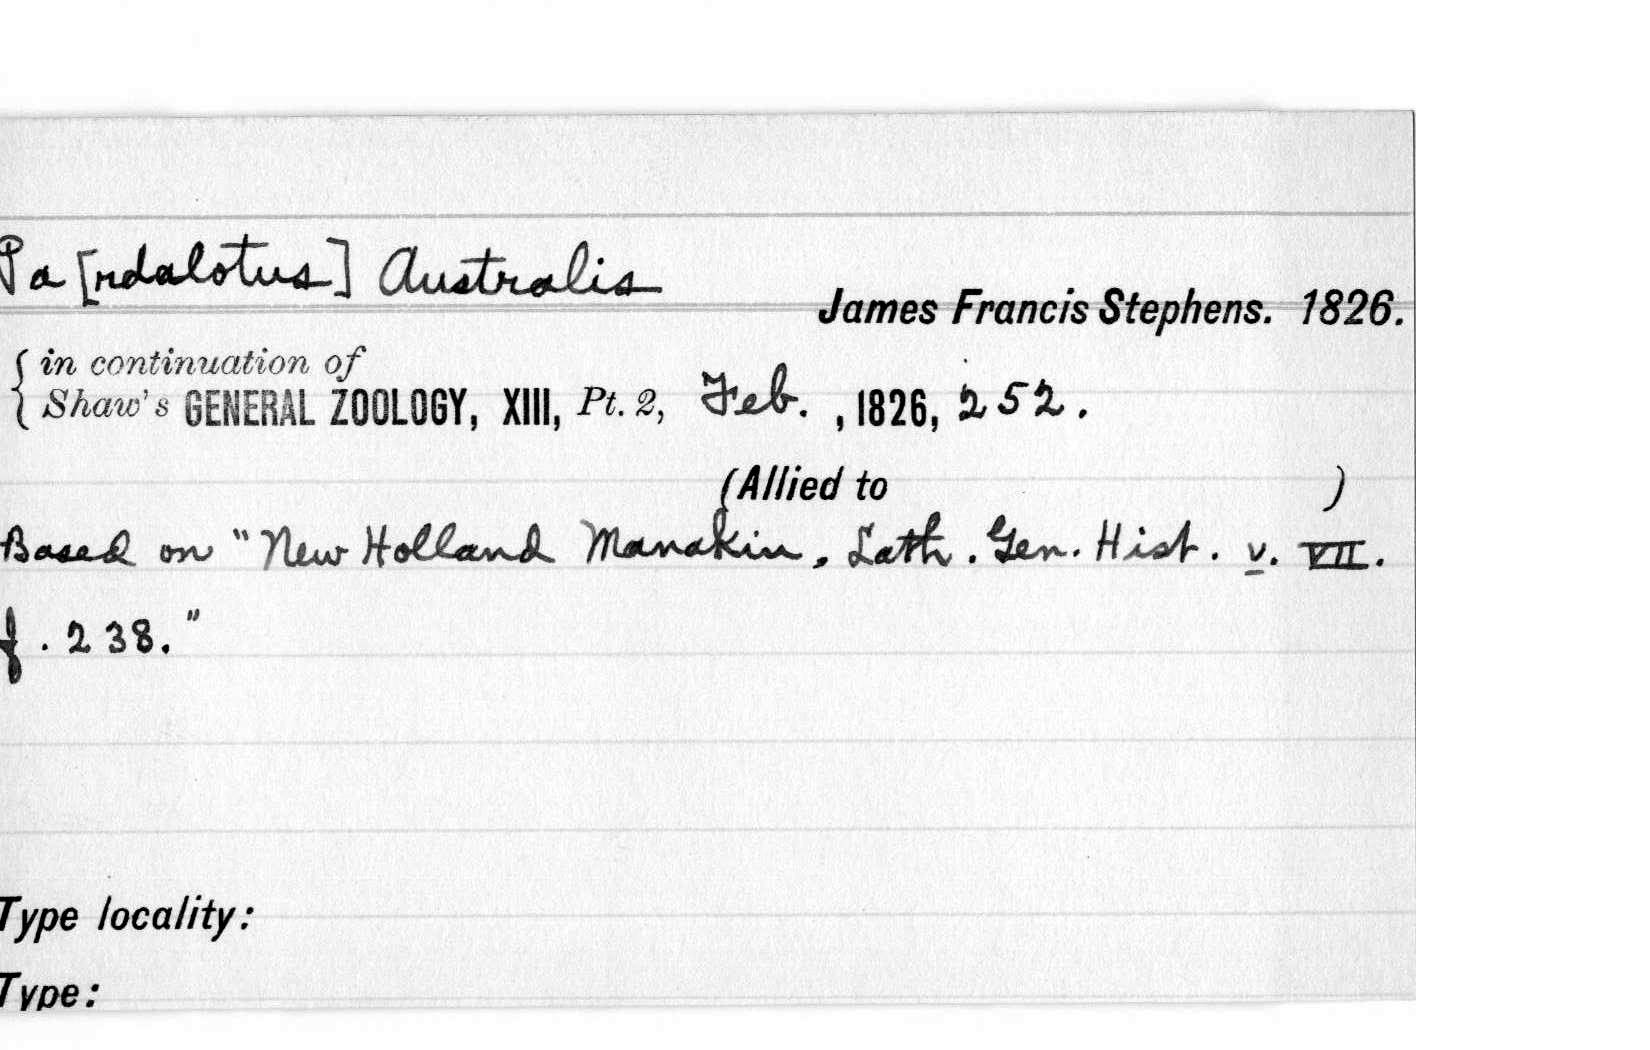 Pa [rdalotus] Australis
James Francis Stephens. 1826.
{ in continuation of
Shaw's GENERAL ZOOLOGY, XIII, Pt. 2, Feb. , 1826, 252.
(Allied to )
Based on "New Holland Manakin, Lath. Gen. Hist. v. VII.
f. 238."
Type locality:
Type: